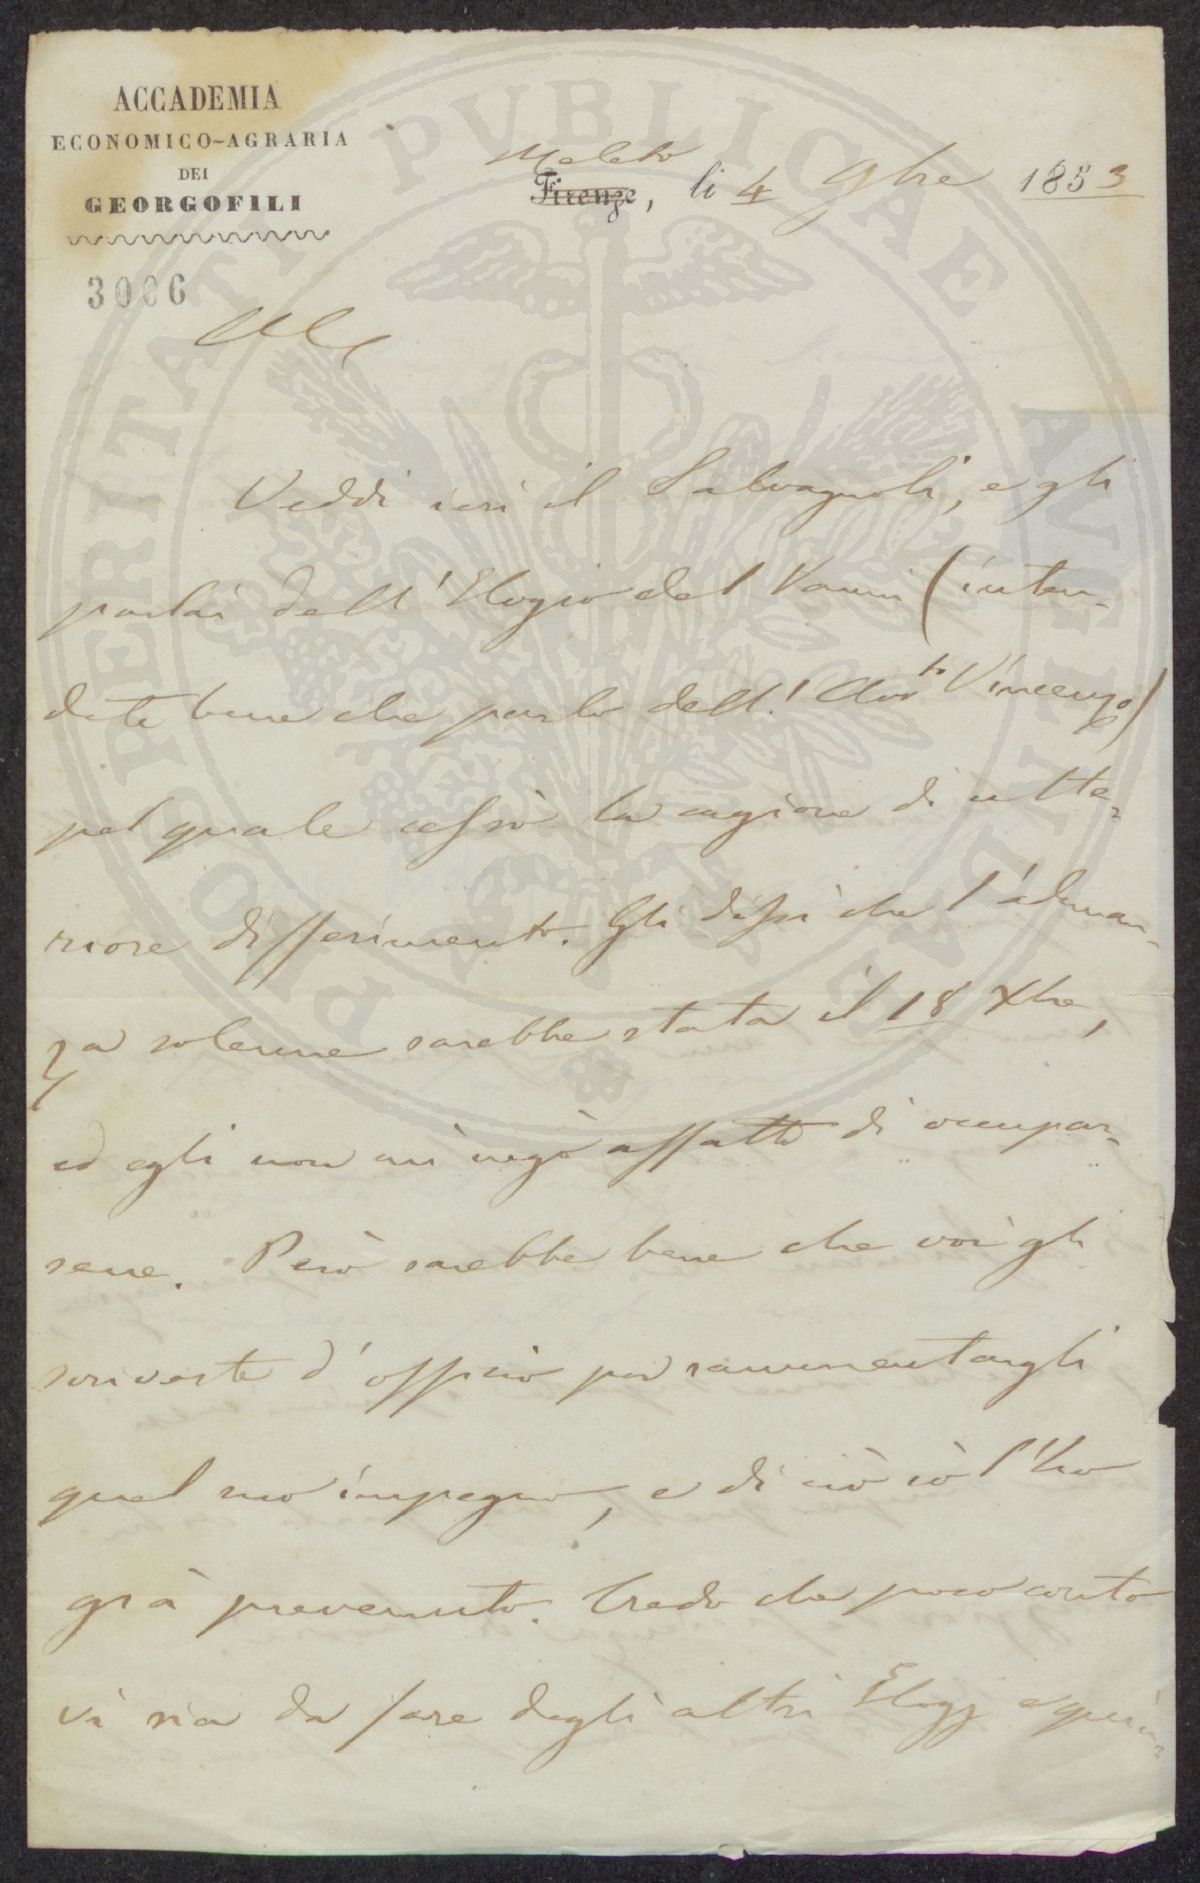 ACCADEMIA
ECONOMICO-AGRARIA
DEI
GEORGOFILI
Meleto
Firenze, li 4 9bre 1853
3086
Vidi ieri il Salvagnoli, e gli
parlai dell'Elogio del Vanni (inten-
dete bene che parlo dell'Avv.to Vincenzo)
pel quale cessò la cagione di ulte-
riore differimento. Gli dissi che l'adunan-
za solenne sarebbe stata il 18 Xbre,
ed egli non mi negò affatto di occupar-
sene. Però sarebbe bene che voi gli
scriveste d'officio per rammentargli
quel suo impegno, e di ciò io l'ho
già prevenuto. Credo che poco conto
vi sia da fare degli altri Elogj e
PROSPERITATI PUBLICAE AUGENDAE